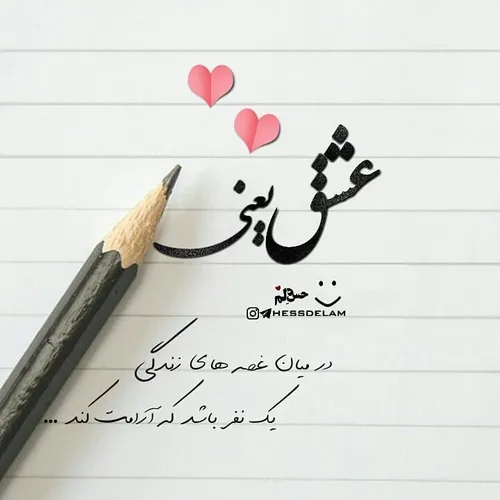 عشق یعنی
حس دلم
HESSDELAM
در میان غصه های زندگی
یک نفر باشد که آرامت کند ...